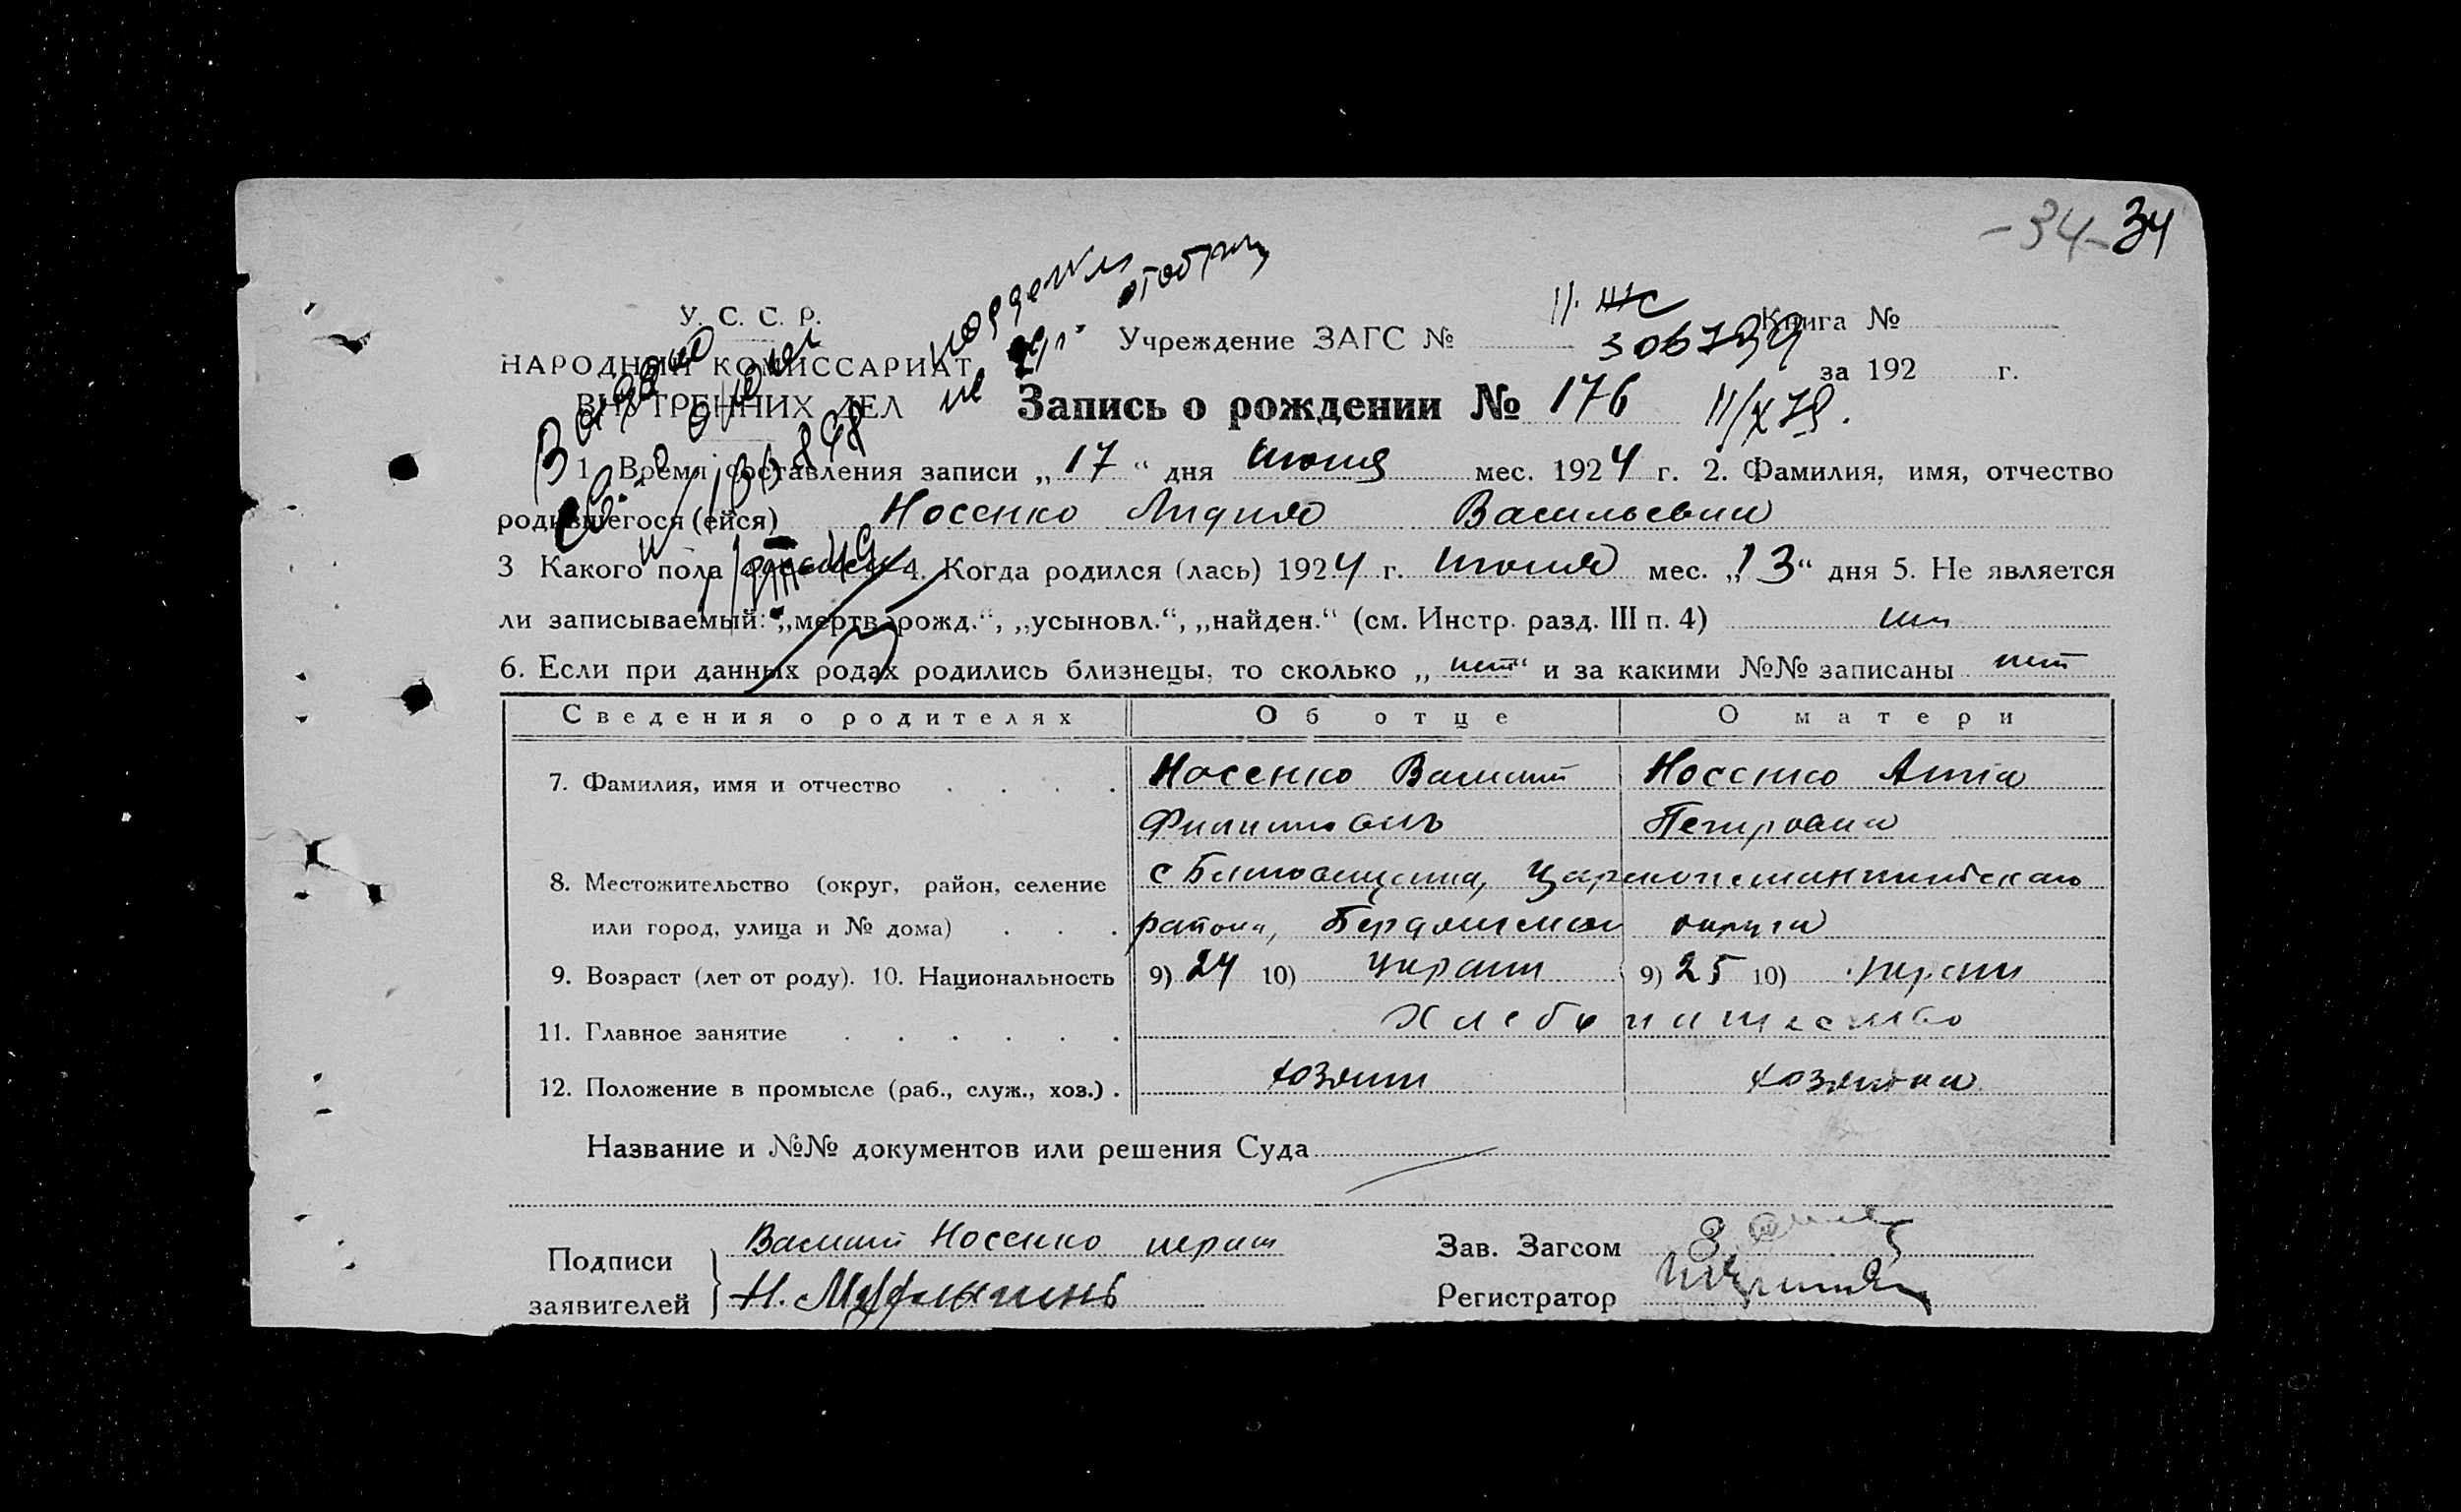 -34- 34
У. С. С. Р.
НАРОДНЫЙ КОМИССАРИАТ
ВНУТРЕННИХ ДЕЛ
Учреждение ЗАГС №
Книга №
за 192 г.
Запись о рождении № 176
1. Время составления записи „17“ дня июня мес. 1924 г. 2. Фамилия, имя, отчество
родившегося (ейся) Носенко Лидия Васильевна
3 Какого пола 4. Когда родился (лась) 1924 г. июня мес. „13“ дня 5. Не является
ли записываемый: „мертв. рожд.“, „усыновл.“, „найден.“ (см. Инстр. разд. III п. 4)
6. Если при данных родах родились близнецы, то сколько „нет“ и за какими №№ записаны нет
Сведения о родителях Об отце О матери
7. Фамилия, имя и отчество Носенко Василий Носенко Анна
Филиппович Петровна
8. Местожительство (округ, район, селение с Царевоконстантиновского
или город, улица и № дома) района, округа
9. Возраст (лет от роду). 10. Национальность 9) 24 10) украин 9) 25 10) украин
11. Главное занятие Хлебопашество
12. Положение в промысле (раб., служ., хоз.) хозяин хозяйка
Название и №№ документов или решения Суда
Подписи Василий Носенко Зав. Загсом
заявителей Регистратор